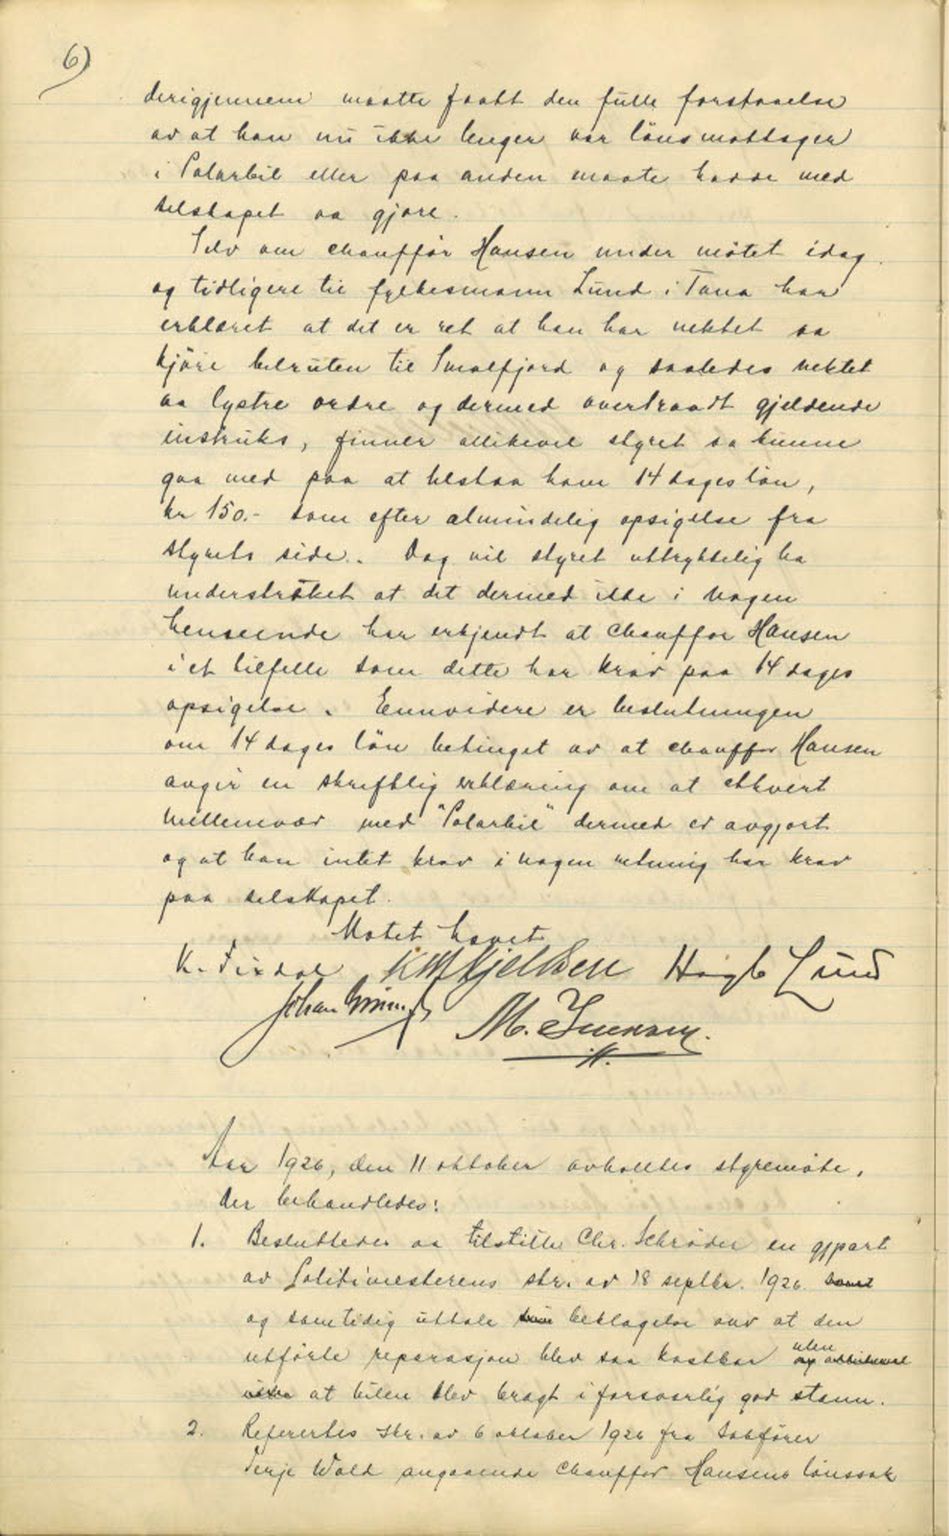 6)
derigjennem maatte faatt den fulle forstaaelse
av at han nu ikke lenger var lönsmottager
i Polarbil eller paa anden maate hadde med
selskapet aa gjøre.
Selv om chauffør Hansen under møtet idag
og tidligere til fylkesmann Lund i Tana har
erklæret at det er ret at han har nektet aa
kjöre bilruten til Smalfjord og saaledes nektet
aa lystre ordre og dermed overtraadt gjeldende
instruks, finner allikevel styret aa kunne
gaa med paa at tilstaa ham 14 dages lön,
kr 150.- som efter almindelig opsigelse fra
styrets side. Dog vil styret uttrykkelig ha
understreket at det dermed ikke i nogen
henseende har erkjendt at chauffør Hansen
i et tilfelle som dette har krav paa 14 dages
opsigelse. Ennvidere er beslutningen
om 14 dages lön betinget av at chauffør Hansen
avgir en skriftlig erklæring om at ethvert
mellemvær med "Polarbil" dermed er avgjort
og at han intet krav i nogen retning har krav
paa selskapet.
Møtet hævet
K. Fixdal Kjeldsen Lund
Johan
M.
Aar 1926, den 11 oktober avholdtes styremöte.
Der behandledes:
1. Besluttedes aa tilstille Chr. Schrøder en gjpart
av Politimesterens skr. av 18 septbr. 1926 samt
og samtidig uttale sin beklagelse over at den
utförte reparasjon blev saa kostbar uten
at bilen blev bragt i forsvarlig god stann.
2. Refertes skr. av 6 oktober 1926 fra Sakfører
Terje Wold angaaende chauffør Hansens lönssak